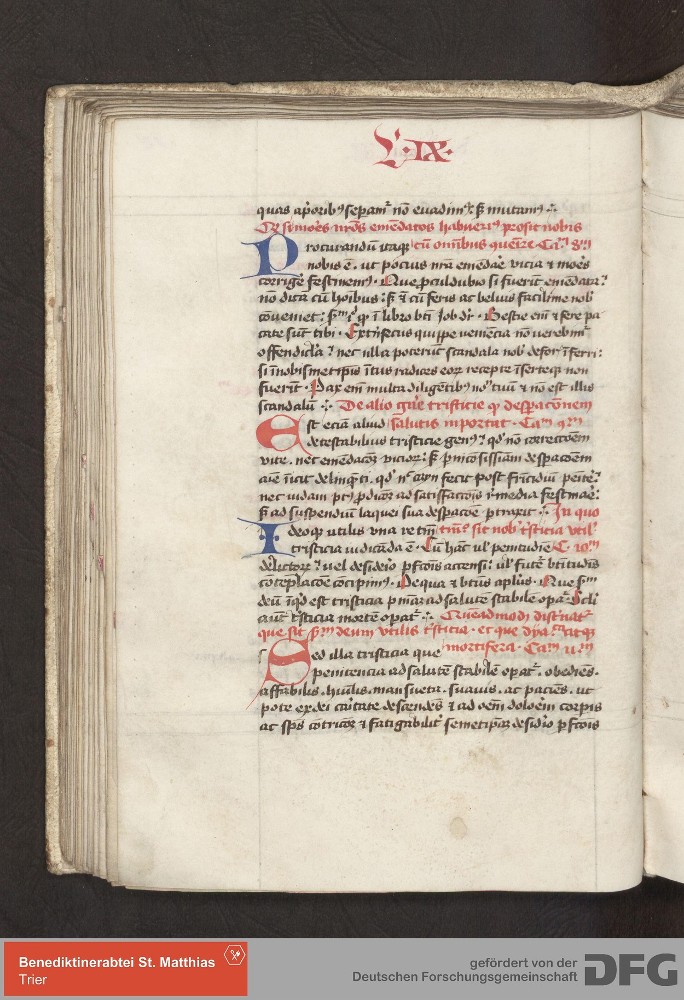 L · IX ·
quas ap̄orib⁹ sepam᷑ nō euadim⁹ : s̄ mutam⁹ ·:·
Qꝫ si moēs nr̄os emēdatos habuerim⁹ prosit nobis
Procurandū itaqꝫ cū omībus quenꝛe · Caᵐ 8ᵐ
nobis ē · ut pocius nr̄a emēdaꝛe vicia ⁊ moēs
corrigeꝛe festinem⁹ · Que ꝓculdubio si fuerīt emēdata ?
nō dicā cū hoībus : s̄ ⁊ cū feris ac beluis facilime nob̄
coueniet : s̄m iḋ qḋ ī libro bt̄i Job dr̄ · Bestie em̄ ⁊ fere pa
cate sūt tibi · Extrīsecus quippe veniencia nō verebim᷑
offendicla ? nec illa poterūt scandala nob̄ defor inferri :
si ī nobismetipis ītus radices eoꝝ recepte īserteqꝫ non
fuerīt · Pax em̄ multa diligentib⁹ nomē tuū ⁊ nō est illis
scandalū ·:· De alio gn̄e tristicie qḋ desperaconem
Est eciam aliud salutis inportat · Caᵐ 9ᵐ
detestabilius tristicie gen⁹ ? qḋ nō correctioem
vite · nec emēdacoꝫ vicioꝝ : s̄ pnicosissiam despacoem
aīe īicit delinquēti · qḋ n̄ cayn fecit post fr̄icidiū penitē ?
nec iudam pt᷑ ꝓdicoꝫ ad satisfaccois r̄media festinaꝛe :
s̄ ad suspendiū laquei sua despacoe ꝑtraxit ·:· In quo
Ideoqꝫ utilis vna re tm̄ tm̄ sit nob̄ tristicia vtil⁹
tristicia iudicāda ē · Cū hāc ul̓ penitudīe C · 10ᵐ
delictoꝝ ? uel desiderio ꝑfcois accensi : ul̓ futuꝛe bt̄itudīs
cōtēplacōe cōcipim⁹ · De qua ⁊ bt̄us apl̄us · Que s̄m
deū īquit est tristicia pniaꝫ ad salutē stabilē opat᷑ · Scl̄i
aūt tristicia mortē opat᷑ ·:· Quēadmodū distīnat᷑
que sit s̄m deum vtilis tristicia · et que dyabolica atqꝫ
Sed illa tristicia que mortifera · Caᵐ 11ᵐ
penitencia ad salutē stabilē opat᷑ · obediēs ·
affabilis · hūilis · mansueta · suauis · ac paciēs · ut
pote ex dei caritate descendēs ⁊ ad oēm doloēm corpis
ac sp̄s cōtricoꝫ ⁊ fatigabilit᷑ semetipaꝫ desiderio ꝑfcois
Benediktinerabtei St. Matthias
Trier
gefördert von der
Deutschen Forschungsgemeinschaft
DFG